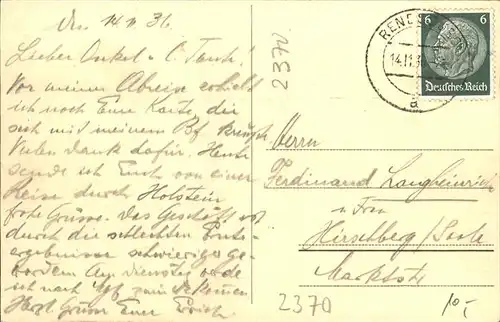 den 14.11.36.
Lieber Onkel u. l. Tante!
Vor meiner Abreise erhielt
ich noch Eure Karte, die
sich mit meinem Bf. kreuzte.
Vielen Dank dafür. Heute
sende ich Euch von einer
Reise durch Holstein
frohe Grüsse. Das Geschäft ist
durch die schlechten Ernte-
ergebnisse schwieriger ge-
worden. Am Dienstag werde
ich nach
Herzl. Grüsse Euer Erich
2370
RENDSBURG
14.11.3
a
6 6
Deutsches Reich
Herrn
Ferdinand Langheinrich
u. Frau
Hirschberg/Saale
Marktstr
2370
10,-